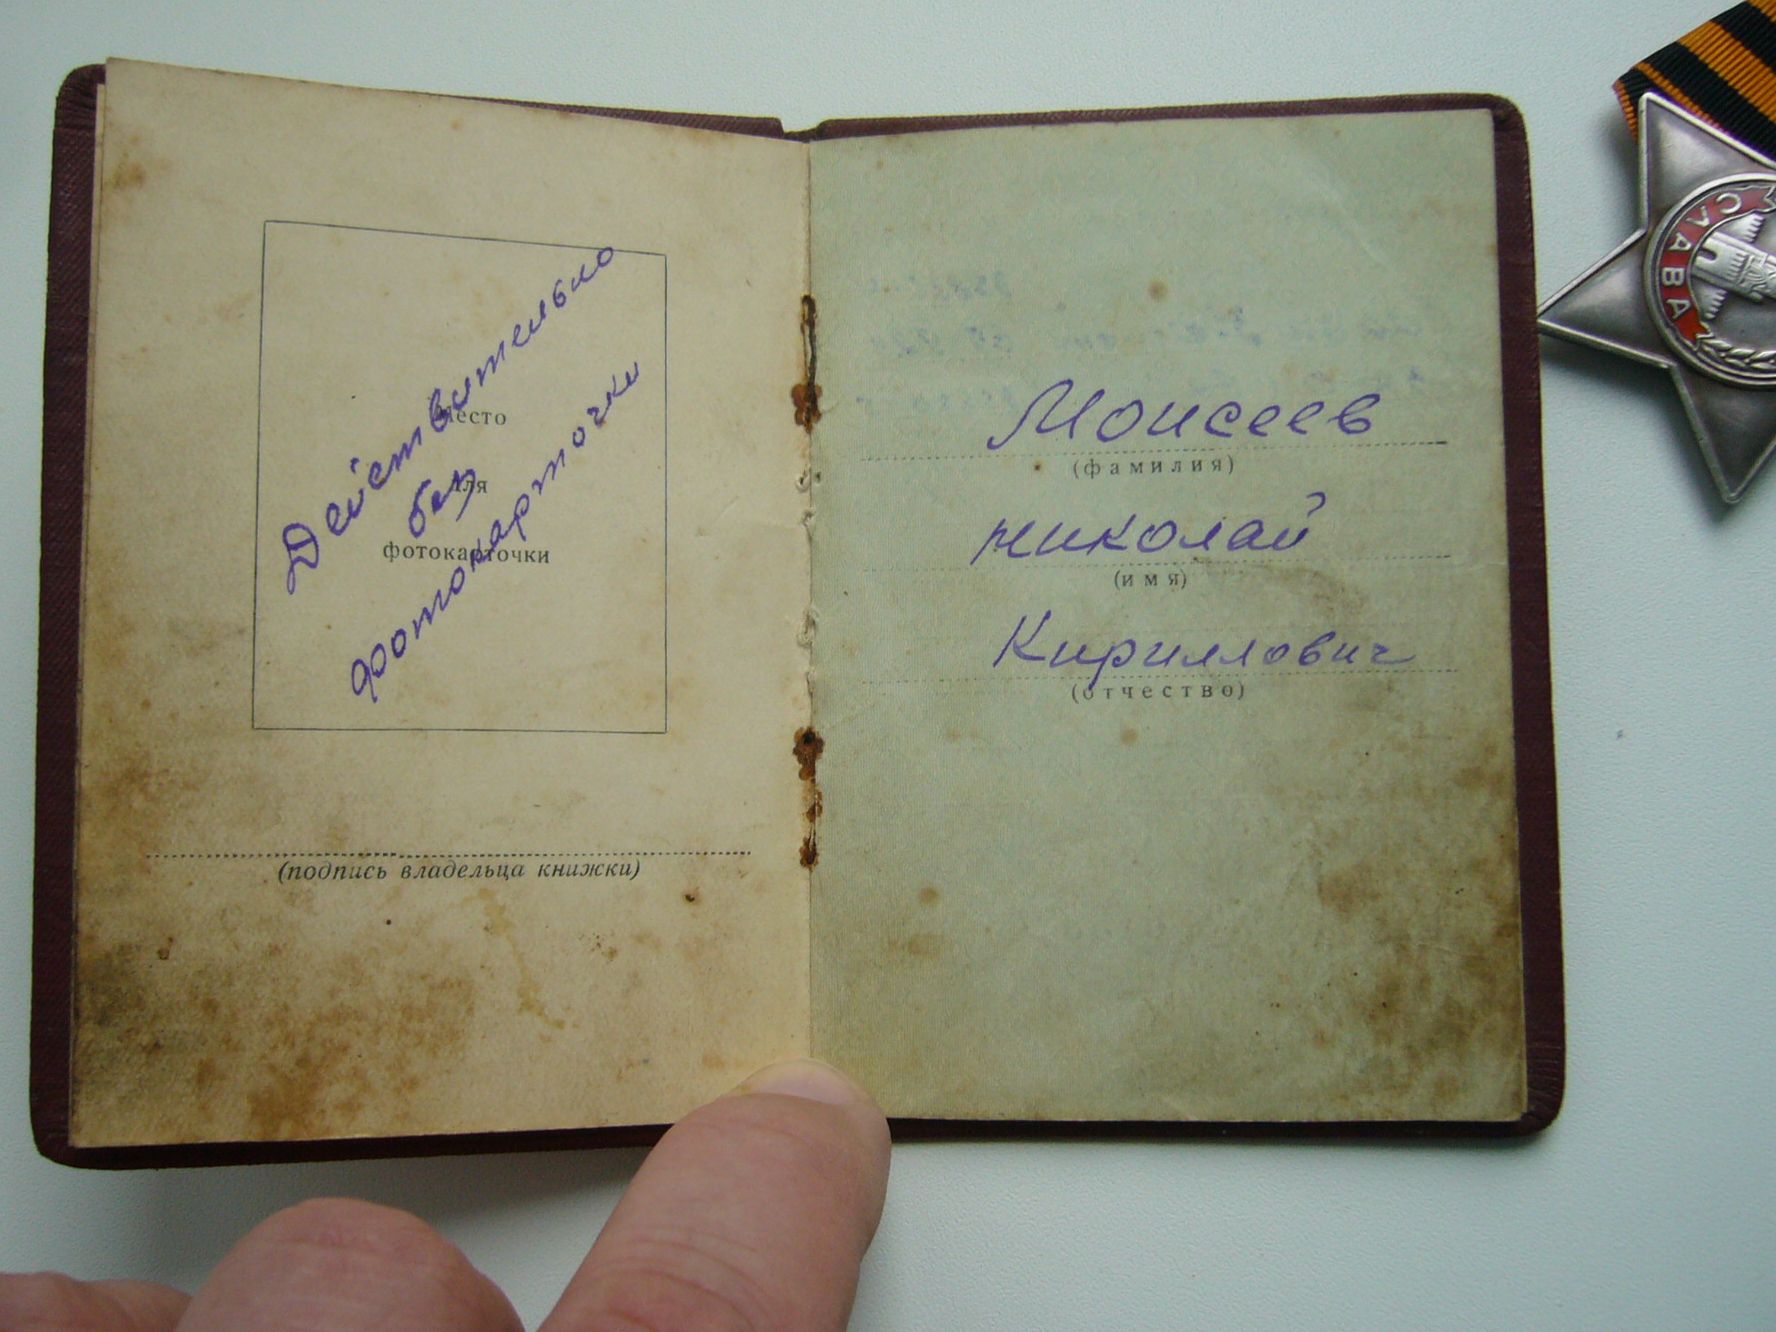 Действительно
без
фотокарточки
Место
для
фотокарточки
(подпись владельца книжки)
Моисеев
(фамилия)
Николай
(имя)
Кириллович
(отчество)
СЛАВА